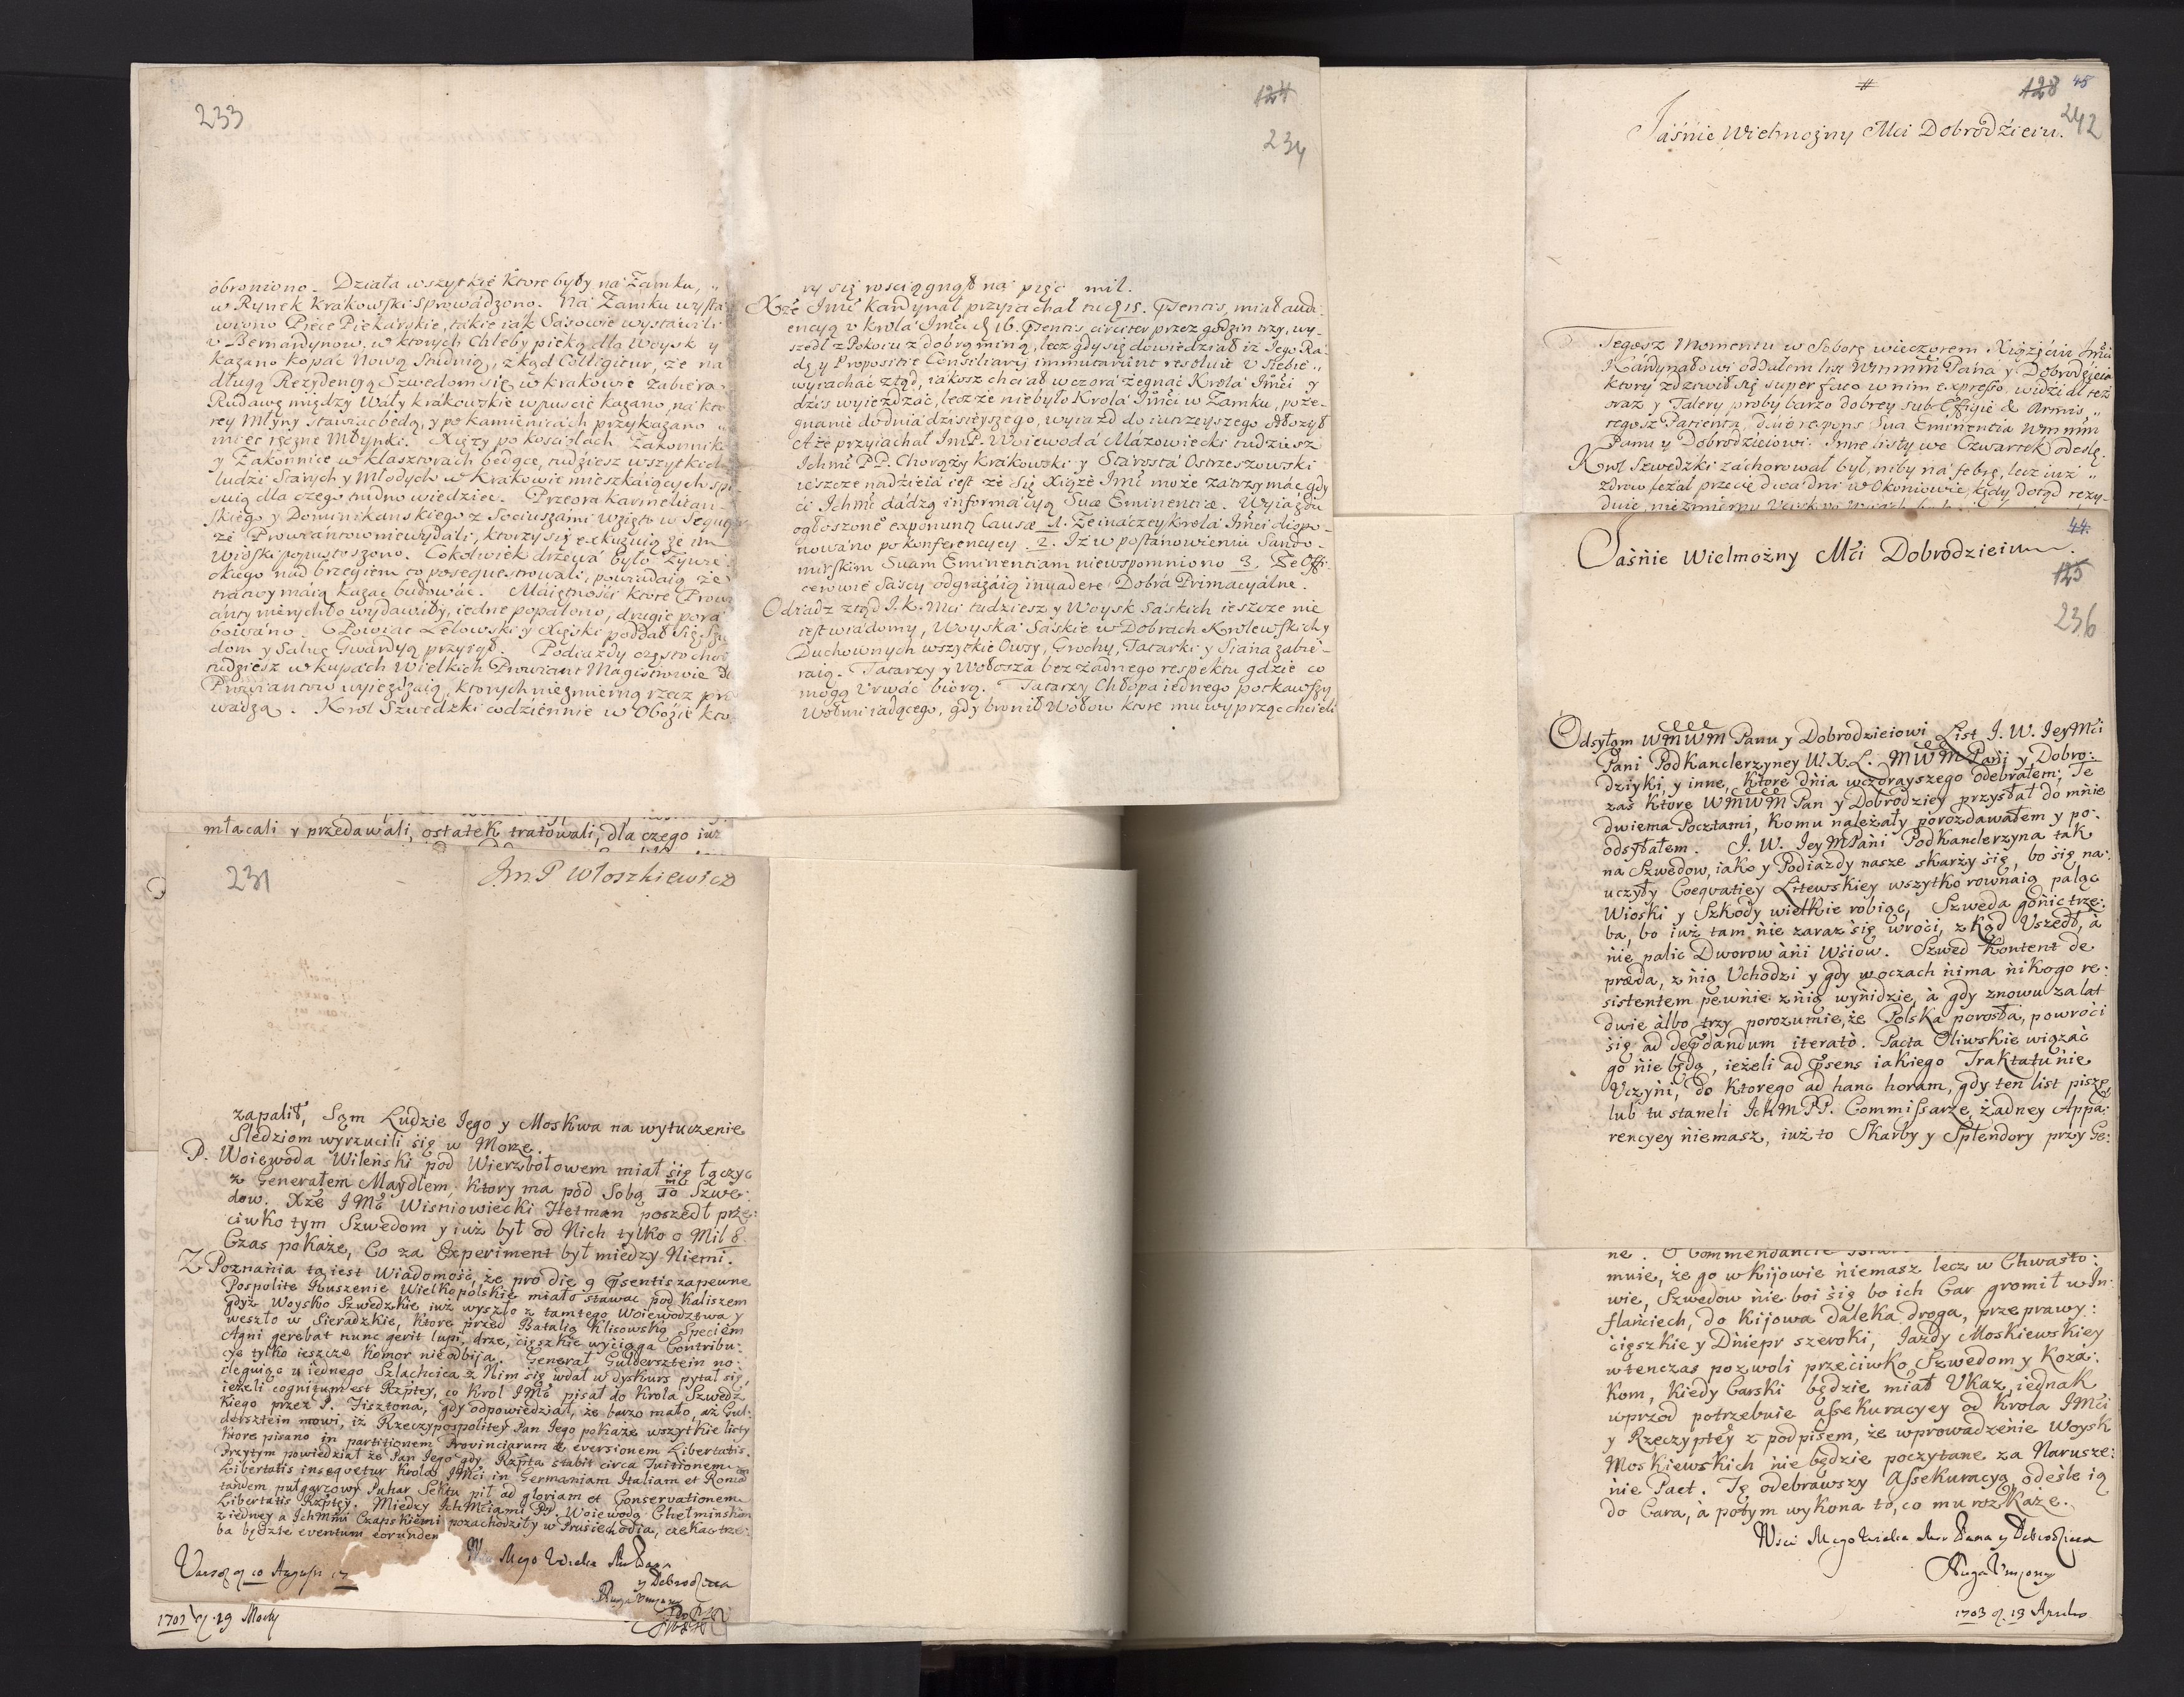 233
obroniono. Działa wszytkie ktore były na Zamku,
w Rynek Krakowski sprowádzono. Na Zamku wysta
wiono Piece Piekarskie, takie iak Sasowie wystawili
v Bernardynow, w ktorych Chleby pieką dla Woysk y
kazano kopać Nową Studnią, zkąd Colligitur, że na
długą Rezydencyą Szwedom się w Krakowie zabiera
Rudawę między Wały krakowskie wpuscić kazano, na kto
rey Młyny stawiać będą, y po kamienicach przykazano
mieć ręczne Młynki. Xięży po kosciołach Zakonnike
y Zakonnice w klasztorach będące, tudziesz wszytkich
ludzi Starych y Młodych w Krakowie mieszkaiących spi
suią dla czego trudno wiedziec. Przeora Karmelitan
skiego y Dominikanskiego z Sociuszámi wzięto w Seque
że Prowiantow niewydali, ktorzy się exkuzuią że im
Wioski popustoszono. Cokolwiek drzewá było Zywie
ckiego nad brzegiem to posequestrowali, powiadaią że
tratwy máią kazać budować. Máiętnosci ktore Prowi
anty nierychło wydawáły, iedne popalono, drugie pora
bowáno. Powiat Lelowski y Xięski poddał się Szwe
dom y Salvę Gwardyą przyiął. Podiazdy często chod
tudziesz w kupách Wielkich Prowiant Magistrowie do
Prowiantow wyiezdzaią, ktorych niezmierną rzecz pro
wadzą. Krol Szwedzki codziennie w Obozie kto
124
234
ry się rosciągnął na pięć mil.
Xże Jmć Kardynał przyiachał tu d. 15. Psentis, miał audi
encyą v krola Jmći d 16. Psentis circiter przez godzin trzy, wy-
szedł z Pokoiu z dobrą miną, lecz gdy się dowiedział iż Jego Ra-
dę y Propositie Consiliarij immutarunt resoluit v siebie
wyiachać ztąd, iakosz chciał wczora żegnać Krola Jmći y
dzis wyiezdzać, lecz że niebyło Krola Jmći w Zamku, poże-
gnanie do dnia dzisieyszego, wyiazd do iutrzeyszego odłozył
et że przyiachał JmP. Woiewodá Mázowiecki tudziesz
Ichmć PP. Chorąży Krákowski y Stárosta Ostrzeszowski
ieszcze nadzieia iest że się Xiążę Jmć może zatrzymáć, gdy
ći Ichmć dádzą informácyą Suæ Eminentiæ. Wyiazdu
ogłoszone exponunt Causæ 1. Że ináczey Krola Jmći dispo-
nowáno po konferencyey. 2. Iż w postánowieniu Sando-
mirskim Suam Eminentiam niewspomniono 3. Że Offi-
cerowie Sascy odgrażáią inuadere Dobrá Primacyálne.
Odiazd ztąd J. K. Mci tudziesz y Woysk Saskich ieszcze nie
iest wiadomy, Woyska Saskie w Dobrach Krolewskich y
Duchownych wszytkie Owsy, Grochy, Tatarki y Siana zabie-
raią. Tatarzy y Wołosza bez żadnego respektu gdzie co
mogą vrwać biorą. Tatarzy Chłopa iednego potkawszy
Wołmi iadącego, gdy bronił Wołow ktore mu wyprządz chcieli
młacali y przedawali, ostatek tratowali, dla czego iuz
231
Jm. P Włoszkiewicz
zapalił, Sąm Ludzie Jego y Moskwa na wytuczenie
Sledziom wyrzucili się w Morze.
P. Woiewoda Wileński pod Wierzbołowem miał się łączyc
z Generałem Maydlem, ktory ma pod Sobą 10 Szwe:
dow. Xże JMć Wisniowiecki Hetman poszedł prze:
ciwko tym Szwedom y iuż był od Nich tylko o Mil 8.
Czas pokaże, Co za Experiment był miedzy Niemi.
Z Poznańia ta iest Wiadomość, że pro die 9 Psentis zapewne
Pospolite Ruszenie Wielkopolskie miało stawac pod Kaliszem
gdyż Woysko Szwedzkie iuż wyszło z tamtego Woiewodztwa y
weszło w Sieradzkie, ktore przed Batalią Klisowską Speciem
Agni gerebat nunc gerit lupi, drze, cięszkie wyciąga Contribu:
cye tylko ieszcze Komor nieodbiia. Generał Guldersztein no:
cleguiąc u iednego Szlachcica z Nim się wdał w dyskurs pytał się,
ieżeli cognitum est Rzptey, co Krol JMć pisał do Krola Szwedz
kiego przez P. Fisztona, gdy odpowiedział, że barzo mało, aż Gul:
dersztein mowi, iż Rzeczypospolitey Pan Jego pokaże wszytkie listy
ktore pisano in partitionem Provinciarum & eversionem Libertatis.
Przytym powiedział że Pan Jego gdy Rzpta stabit circa Tuitionem
Libertatis insequetur Krola JMći in Germaniam Italiam et Romã
tandem pułgarcowy Puhar Sektu pił ad gloriam et Conservationem
Libertatis Rzptey. Miedzy IchMciami PP. Woiewodą Chełminskim
z iedney a IchMmi Czapskiemi pozachodziły w Prusiech odia, czekac trze:
ba będzie eventum eorundem
Wm Mego Wielce Mo Pana
y Dobrodzieia
1702 d. 19 Martij
128 48
242
Jaśnie Wielmożny Mći Dobrodźieiu.
Tegosz Momentu w Sobotę wieczorem Xiążęćiu Jmći
Kárdynałowi oddałem list WmmM Pana y Dobrodzieia
ktory zdziwił się super facto w nim expresso. widział też
oraz y Talery proby barzo dobrey sub Effigie & Armis
tegosz Patienta, daie respons Sua Eminentia WmmM
Panu y Dobrodzieiowi. Inne listy we Czwartek odeslę.
Krol Szwedzki záchorował był, niby ná febrę, lecz iusz
zdrow leżał przecię dwa dni w Okoniowie, kędy dotąd rezy-
44.
Jaśnie Wielmożny Mći Dobrodzieiu.
125
236
Odsyłam WMWM Panu y Dobrodzieiowi List J. W. JeyMći
Pani Podkanclerzyney W. X. L. MWM Pani y Dobro:
dziyki, y inne, ktore dńia wczorayszego odebrałem, Te
zas ktore WMWM Pan y Dobrodziey przysłał do mńie
dwiema Pocztami, komu należały porozdawałem y po:
odsyłałem. J. W. JeyMPani Podkanclerzyna tak
na Szwedow, iako y Podiazdy nasze skarży się, bo się na:
uczyły Coequatiey Litewskiey wszytko rownaią paląc
Wioski y Szkody wielkie robiąc, Szweda gonic trze:
ba, bo iuż tam nie zaraz się wroci, zkąd Uszedł, à
nie palic Dworow àni Wsiow. Szwed Kontent de
præda, z nią Uchodzi y gdy w oczach nima nikogo re:
sistentem pewńie z nią wynidzie, à gdy znowu za lat
dwie àlbo trzy porozumie, że Polska porosła, powroci
się ad deprædandum iterato. Pacta Oliwskie wiązac
go nie będą, ieżeli ad Psens iakiego Traktatu nie
Uczyni, do ktorego ad hanc horam, gdy ten list piszę
lub tu staneli IchMPP. Commissarze, żadney Appa:
rencyey niemasz, iuż to Skarby y Splendory przy Ge:
muie, że go w Kijowie niemasz lecz w Chwasto:
wie, Szwedow nie boi się bo ich Car gromił w In:
flanciech, do Kijowa daleka droga, przeprawy:
cięszkie y Dniepr szeroki, Jazdy Moskiewskiey
wtenczas pozwoli przećiwko Szwedom y Koza:
kom, kiedy Carski będzie miał Vkaz, iednak
wprzod potrzebuie assekuracyey od Krola JMći
y Rzeczyptey z podpisem, że wprowadzenie Woysk
Moskiewskich nie będzie poczytane za Narusze:
nie Pact. Tę odebrawszy Assekuracyą, odesle ią
do Cara, à potym wykona to, co mu rozkaże.
Wści Mego Wielce Mo Pana y Dobrodzieia
Sługa Vniżony
1703 d. 13 Aprilis